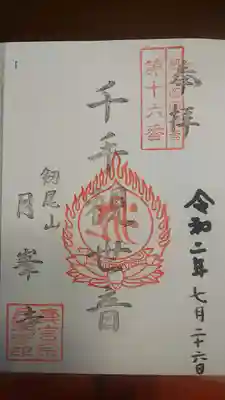 奉拝
第十六番
令和二年七月二十六日
千手観世音
釼尾山
月峯寺